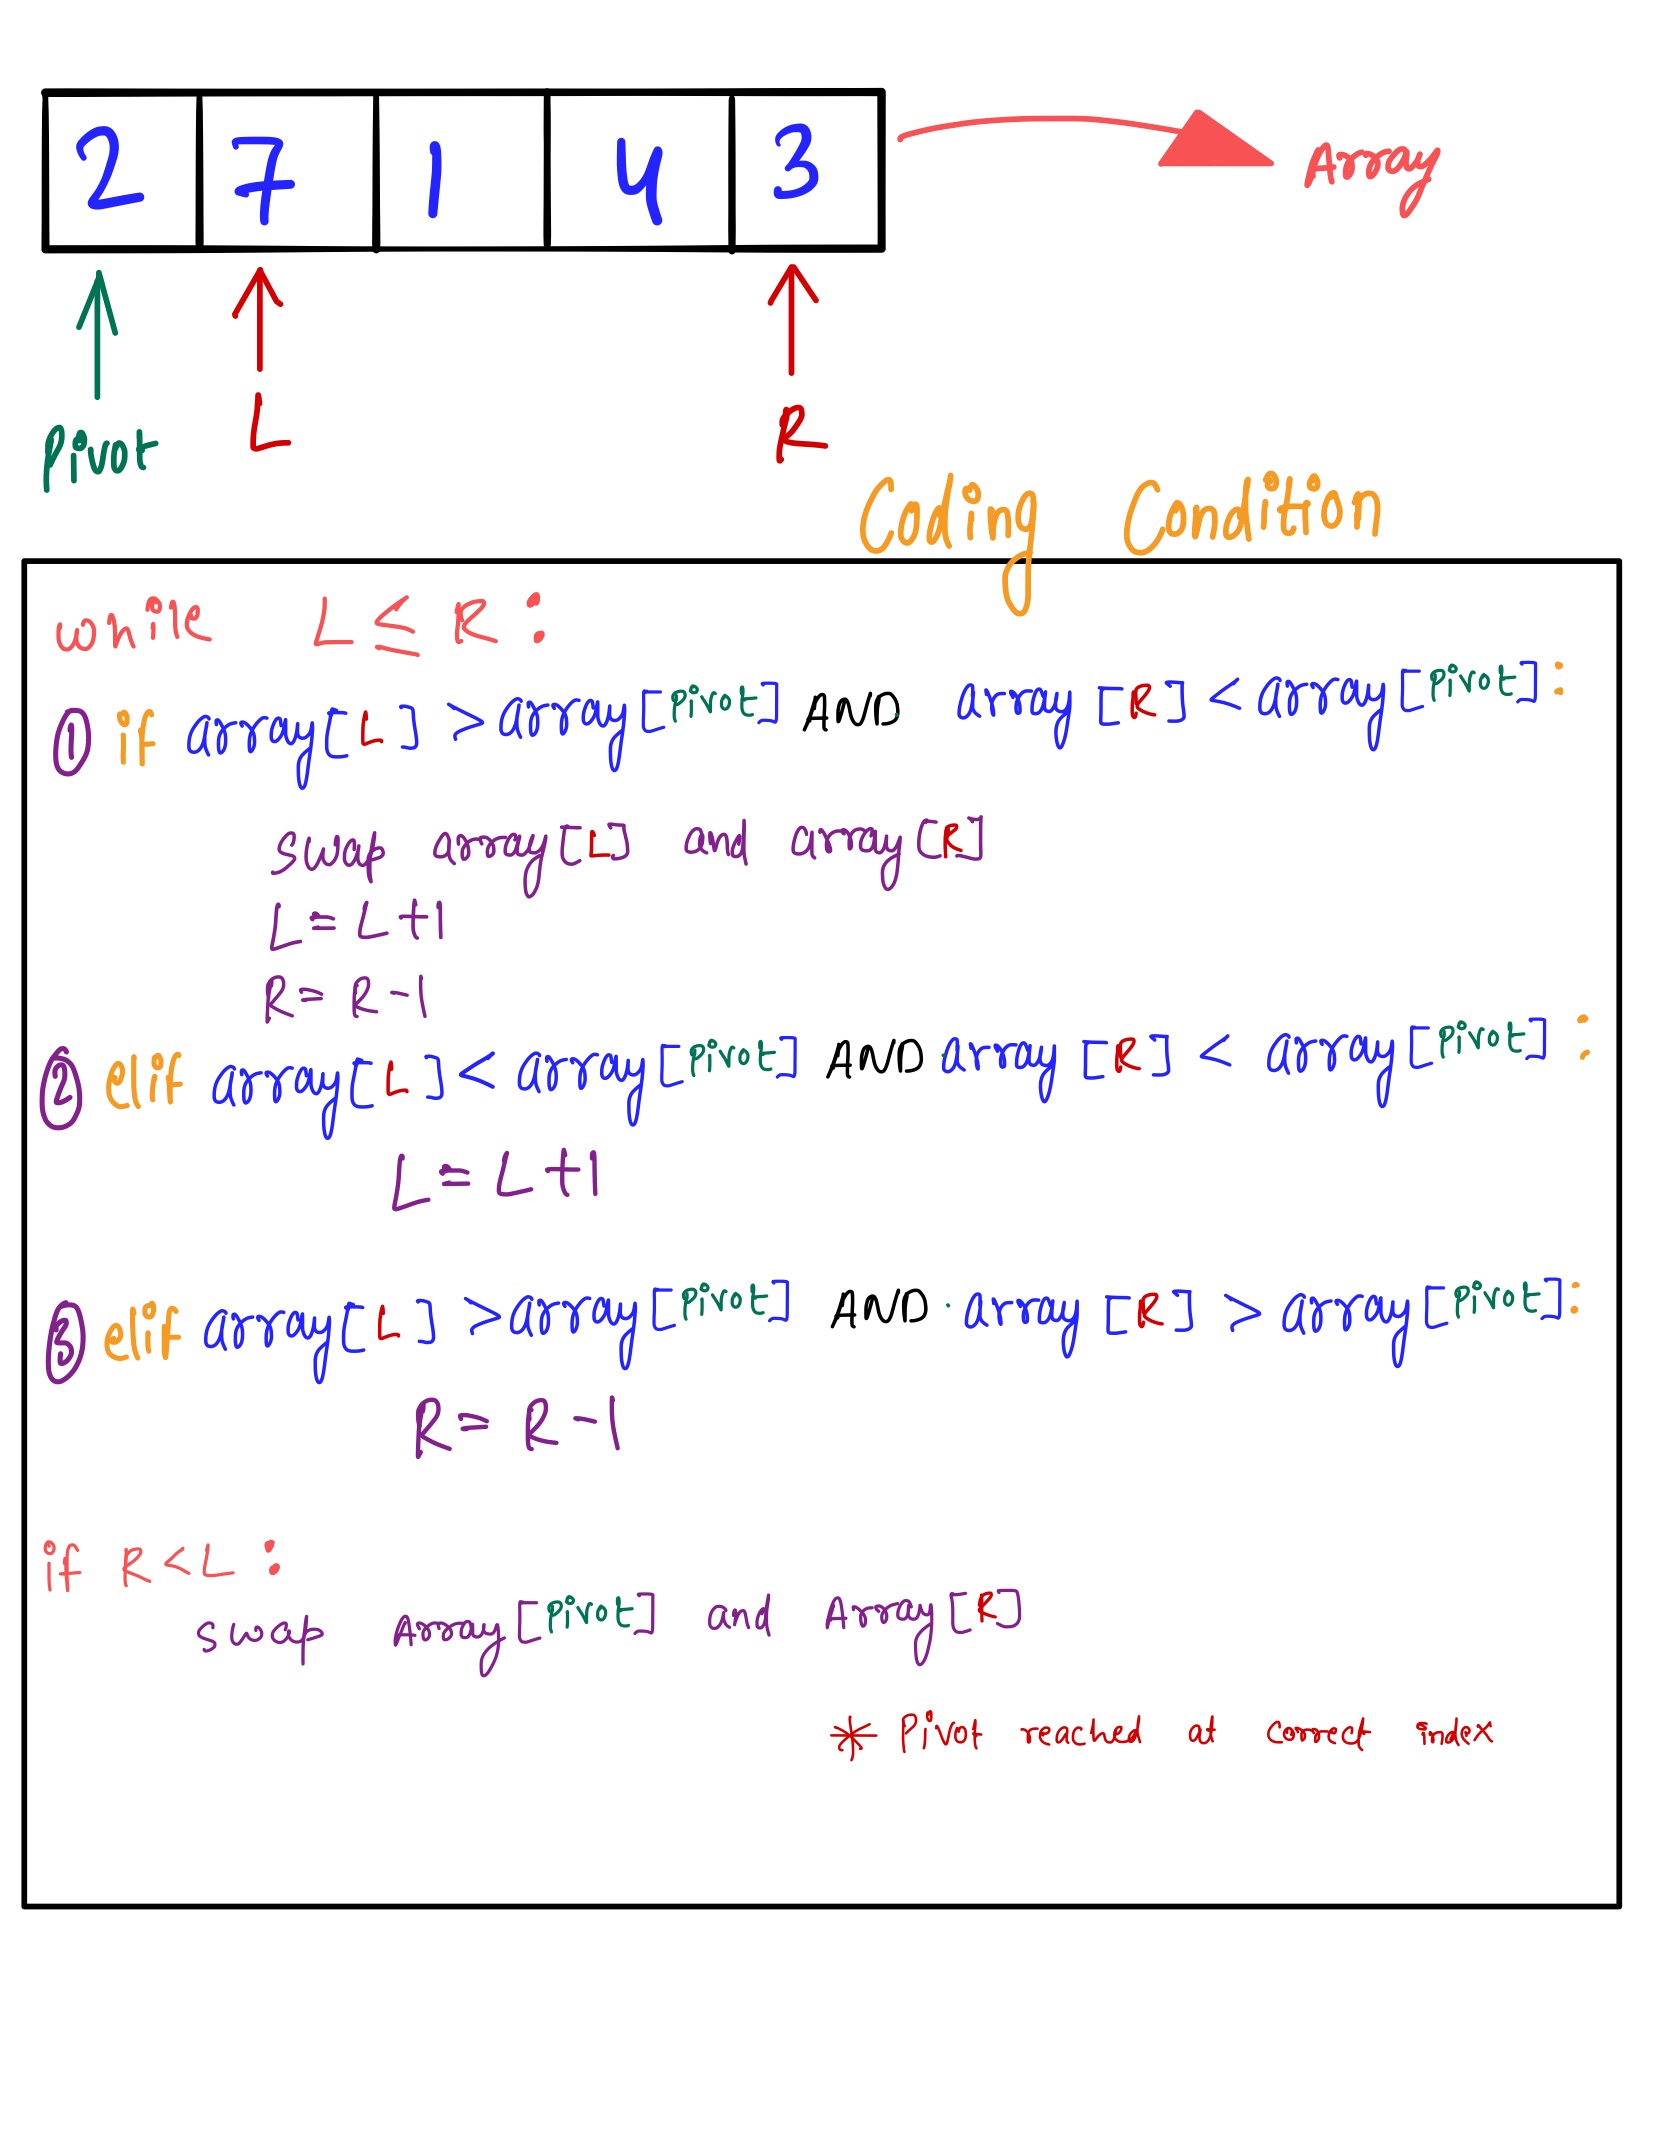 2 7 1 4 3 Array
Pivot L R
Coding Condition
while L ≤ R :
① if array[L] > array[Pivot] AND array [R] < array[Pivot] :
swap array[L] and array[R]
L = L+1
R = R-1
② elif array[L] < array[Pivot] AND array [R] < array[Pivot] :
L = L+1
③ elif array[L] > array[Pivot] AND array [R] > array[Pivot] :
R = R-1
if R < L :
swap Array[Pivot] and Array[R]
* Pivot reached at correct index